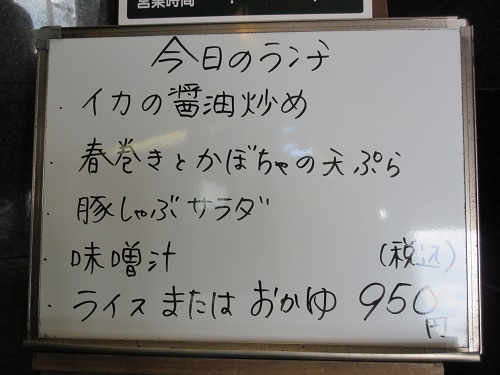 営業時間
今日のランチ
・イカの醤油炒め
・春巻きとかぼちゃの天ぷら
・豚しゃぶサラダ
・味噌汁 (税込)
・ライス または おかゆ 950円